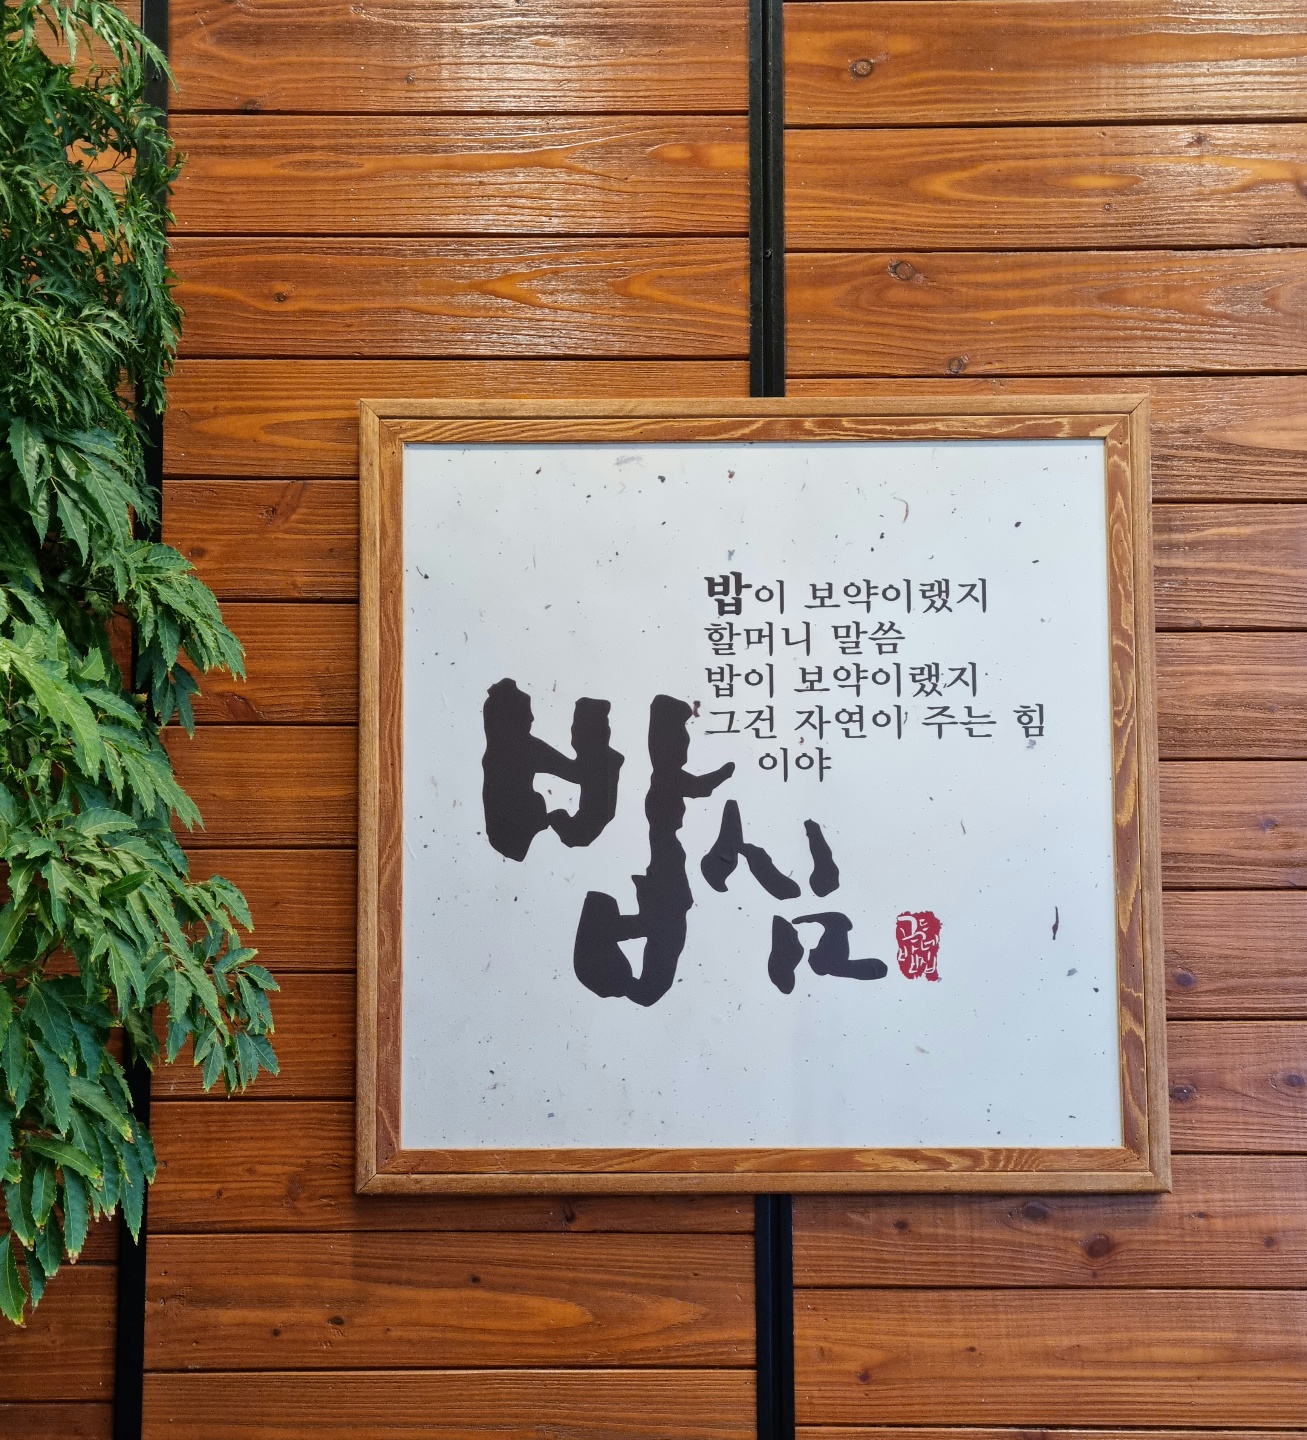 밥이 보약이랬지
할머니 말씀
밥이 보약이랬지
그건 자연이 주는 힘
이야
밥심